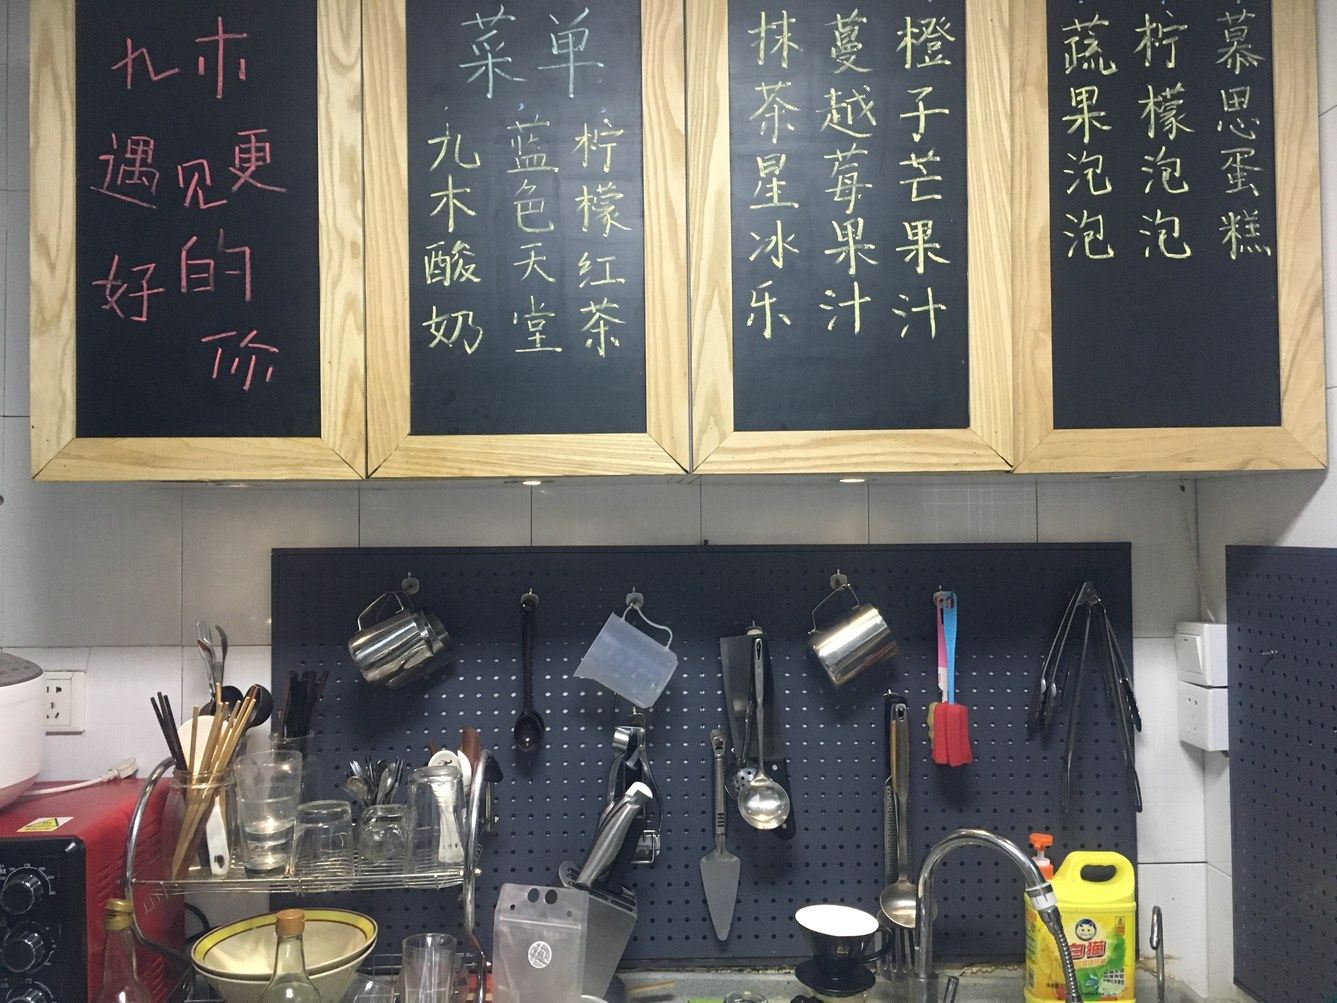 九木
遇见更
好的
你
菜单
九木酸奶
蓝色天堂
柠檬红茶
抹茶星冰乐
蔓越莓果汁
橙子芒果汁
蔬果泡泡
柠檬泡泡
慕思蛋糕
白猫